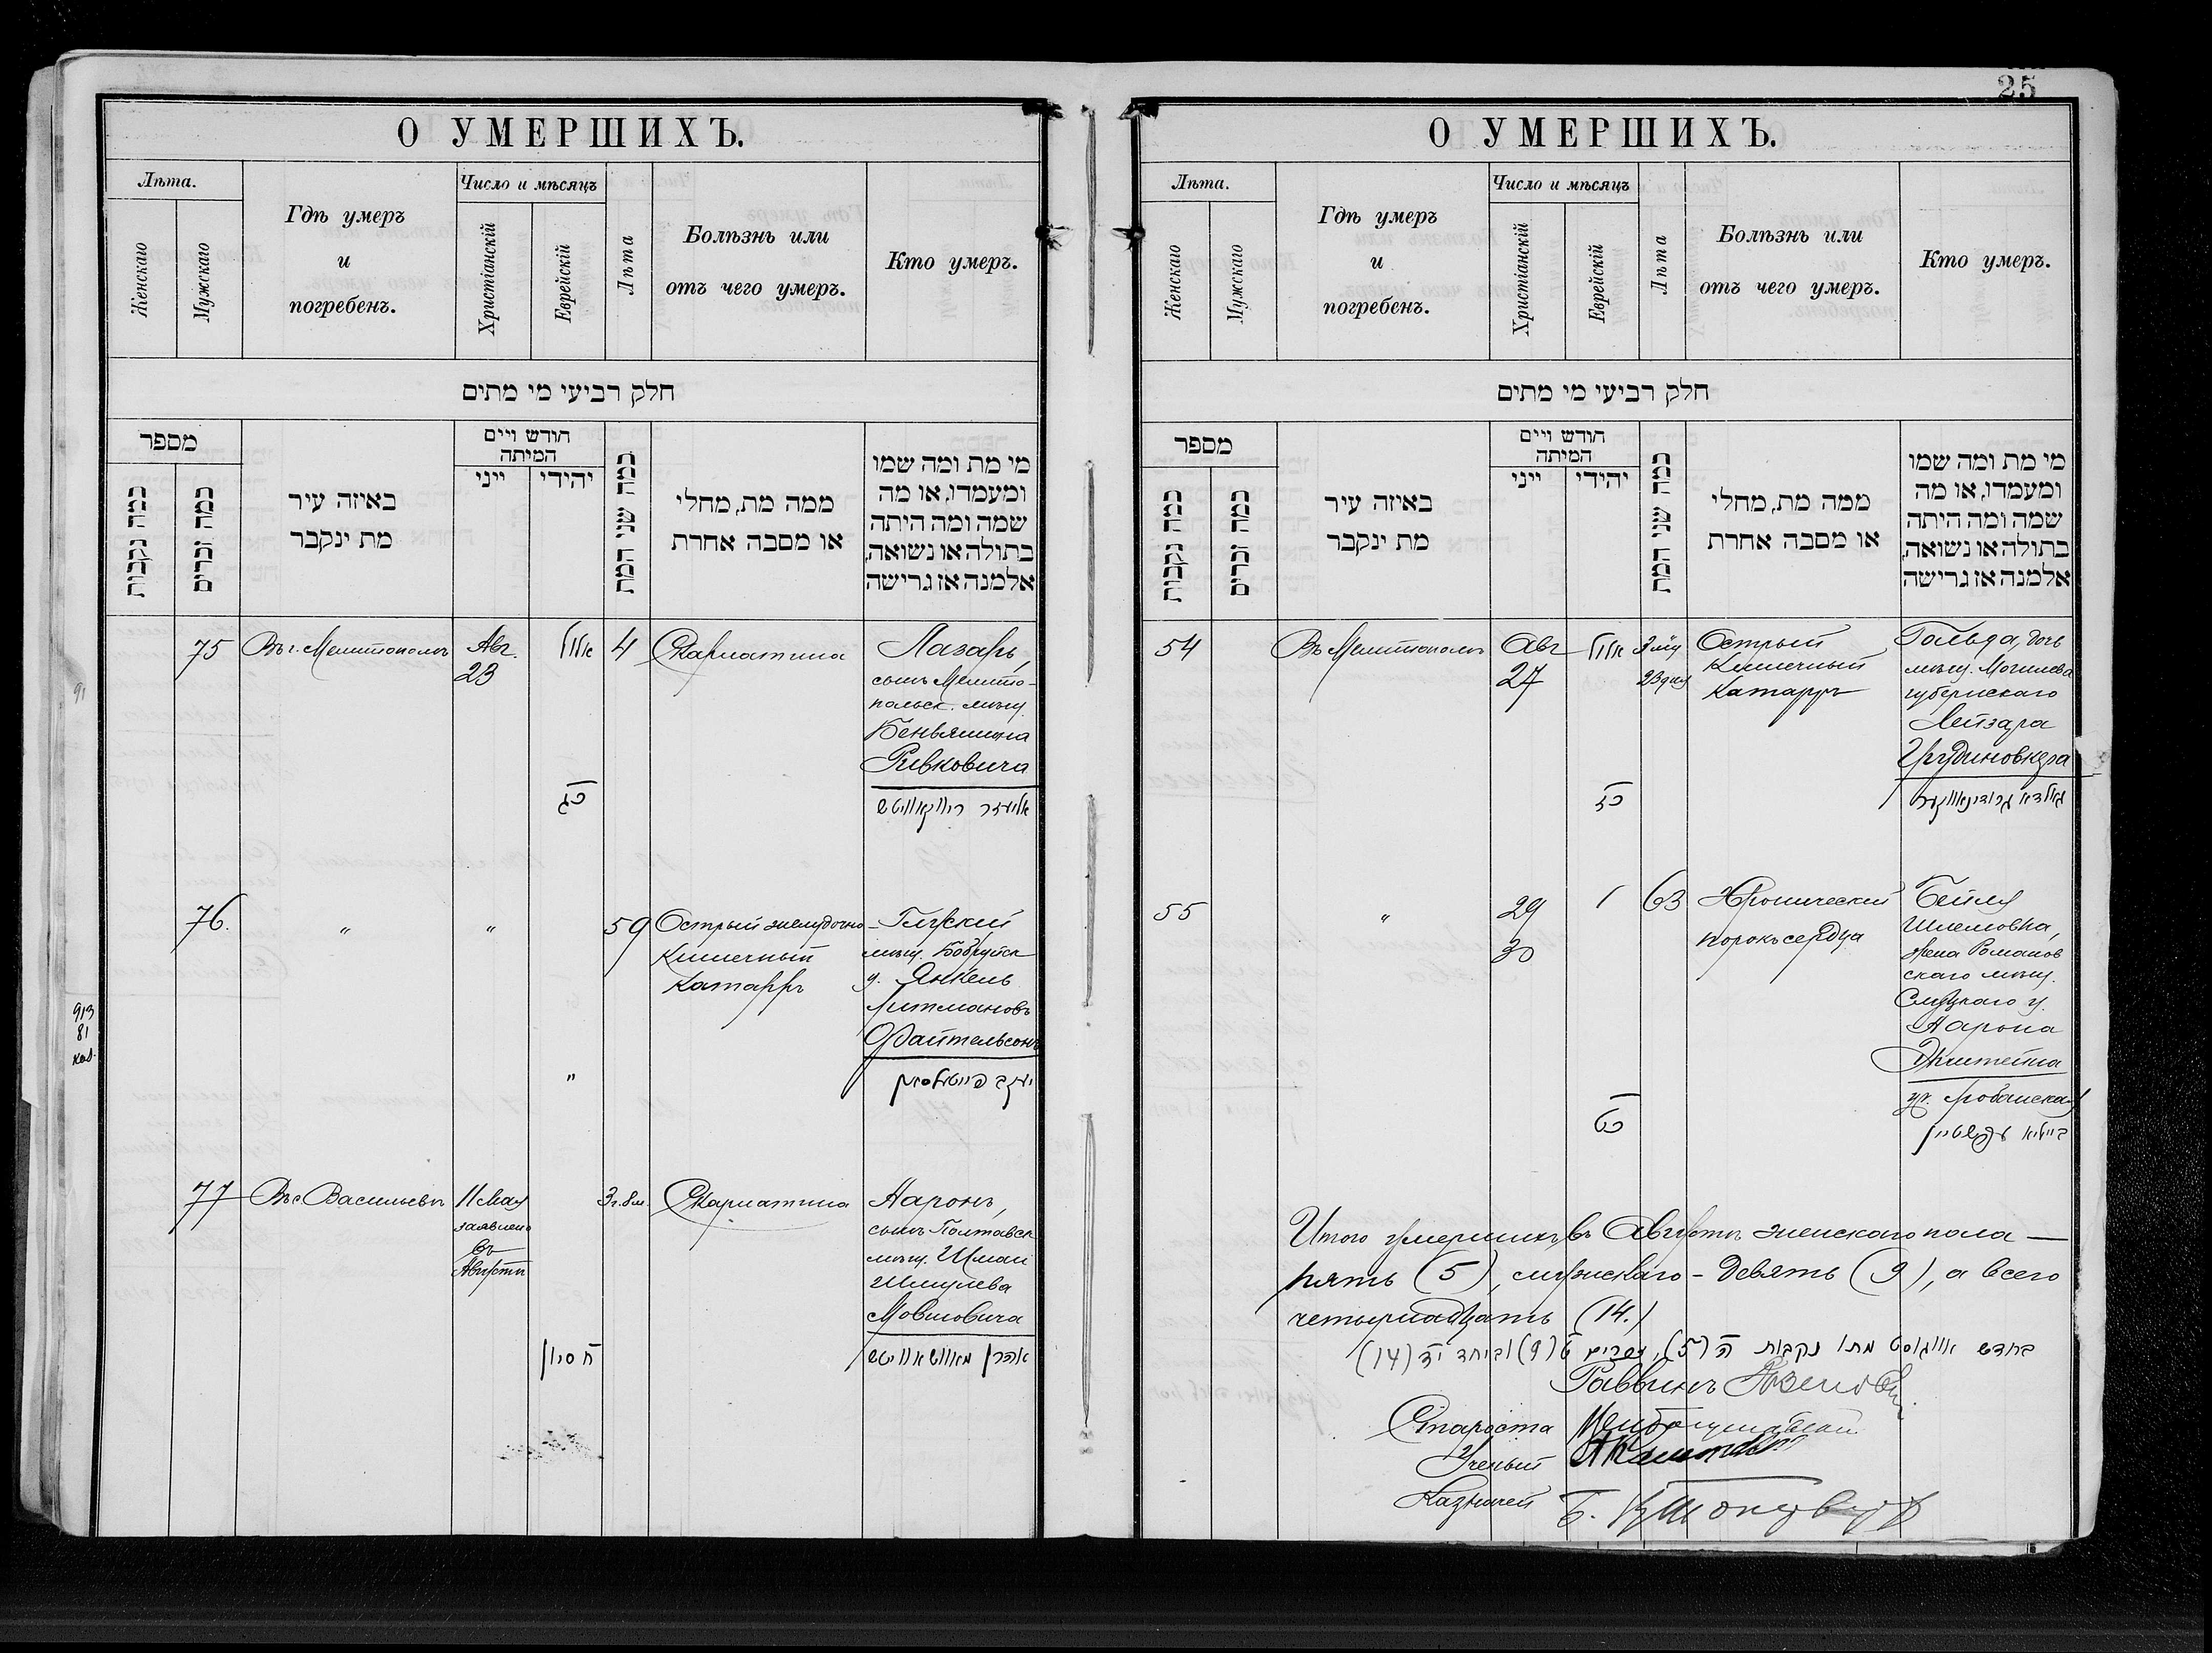 25
О УМЕРШИХЪ.
Лѣта.
Женскаго
Мужскаго
Гдѣ умеръ
и
погребенъ.
Число и мѣсяцъ
Христіанскій
Еврейскій
Лѣта
Болѣзнь или
отъ чего умеръ.
Кто умеръ.
חלק רביעי מי מתים
מספר
כמה נקבות
כמה זכרים
באיזה עיר
מת ינקבר
חודש ויים
המיתה
ייני
יהידי
כמה שני המת
ממה מת, מחלי
או מסבה אחרת
מי מת ומה שמו
ומעמדו, או מה
שמה ומה היתה
בתולה או נשואה,
אלמנה אז גרישה
75
Въ г. Мелитополѣ
Авг.
23
אלול
כג
4
Скарлатина
Лазарь,
сынъ Мелито-
польск. мѣщ.
Беньямина
Ривковича
אליעזר ריווקאוויטש
76.
"
"
"
59
Острый желудочно-
кишечный
катарръ
Глуский
мѣщ. Бобруйск
у. Янкель
Литмановъ
Файтельсонъ
יעקב פייטעלסאן
913
81
77
Въ с. Васильевкѣ
11 Мая
заявлено
въ
Августѣ
ח סיון
3 г. 8 м.
Скарлатина
Ааронъ,
сынъ Полтавск
мѣщ. Шмаи
Шмулева
Мовшовича
אהרן מאוושאוויטש
О УМЕРШИХЪ.
Лѣта.
Женскаго
Мужскаго
Гдѣ умеръ
и
погребенъ.
Число и мѣсяцъ
Христіанскій
Еврейскій
Лѣта
Болѣзнь или
отъ чего умеръ.
Кто умеръ.
חלק רביעי מי מתים
מספר
כמה נקבות
כמה זכרים
באיזה עיר
מת ינקבר
חודש ויים
המיתה
ייני
יהידי
כמה שני המת
ממה מת, מחלי
או מסבה אחרת
מי מת ומה שמו
ומעמדו, או מה
שמה ומה היתה
בתולה או נשואה,
אלמנה אז גרישה
54
Въ Мелитополѣ
Авг
27
אלול
כז
23 дня
Острый
Кишечный
Катарръ
Гольда, дочь
мѣщ. Могилева
губернскаго
Лейзара
Грудиновкера
גאלדא גרודינאווקער
55
"
29
30
כט
63
Хронический
порокъ сердца
Бейля
Шлемовна,
жена Романов
скаго мѣщ.
Слуцкаго у.
Аарона
Эпштейна
ביילא עפשטיין
Итого умершихъ въ Августѣ женскаго пола —
пять (5), мужскаго - девять (9), а всего
четырнадцать (14.)
בחדש אווגוסט מתו נקבות ה (5), זכרים ט (9) וביחד יד (14)
Раввинъ
Староста
Ученый
Казначей